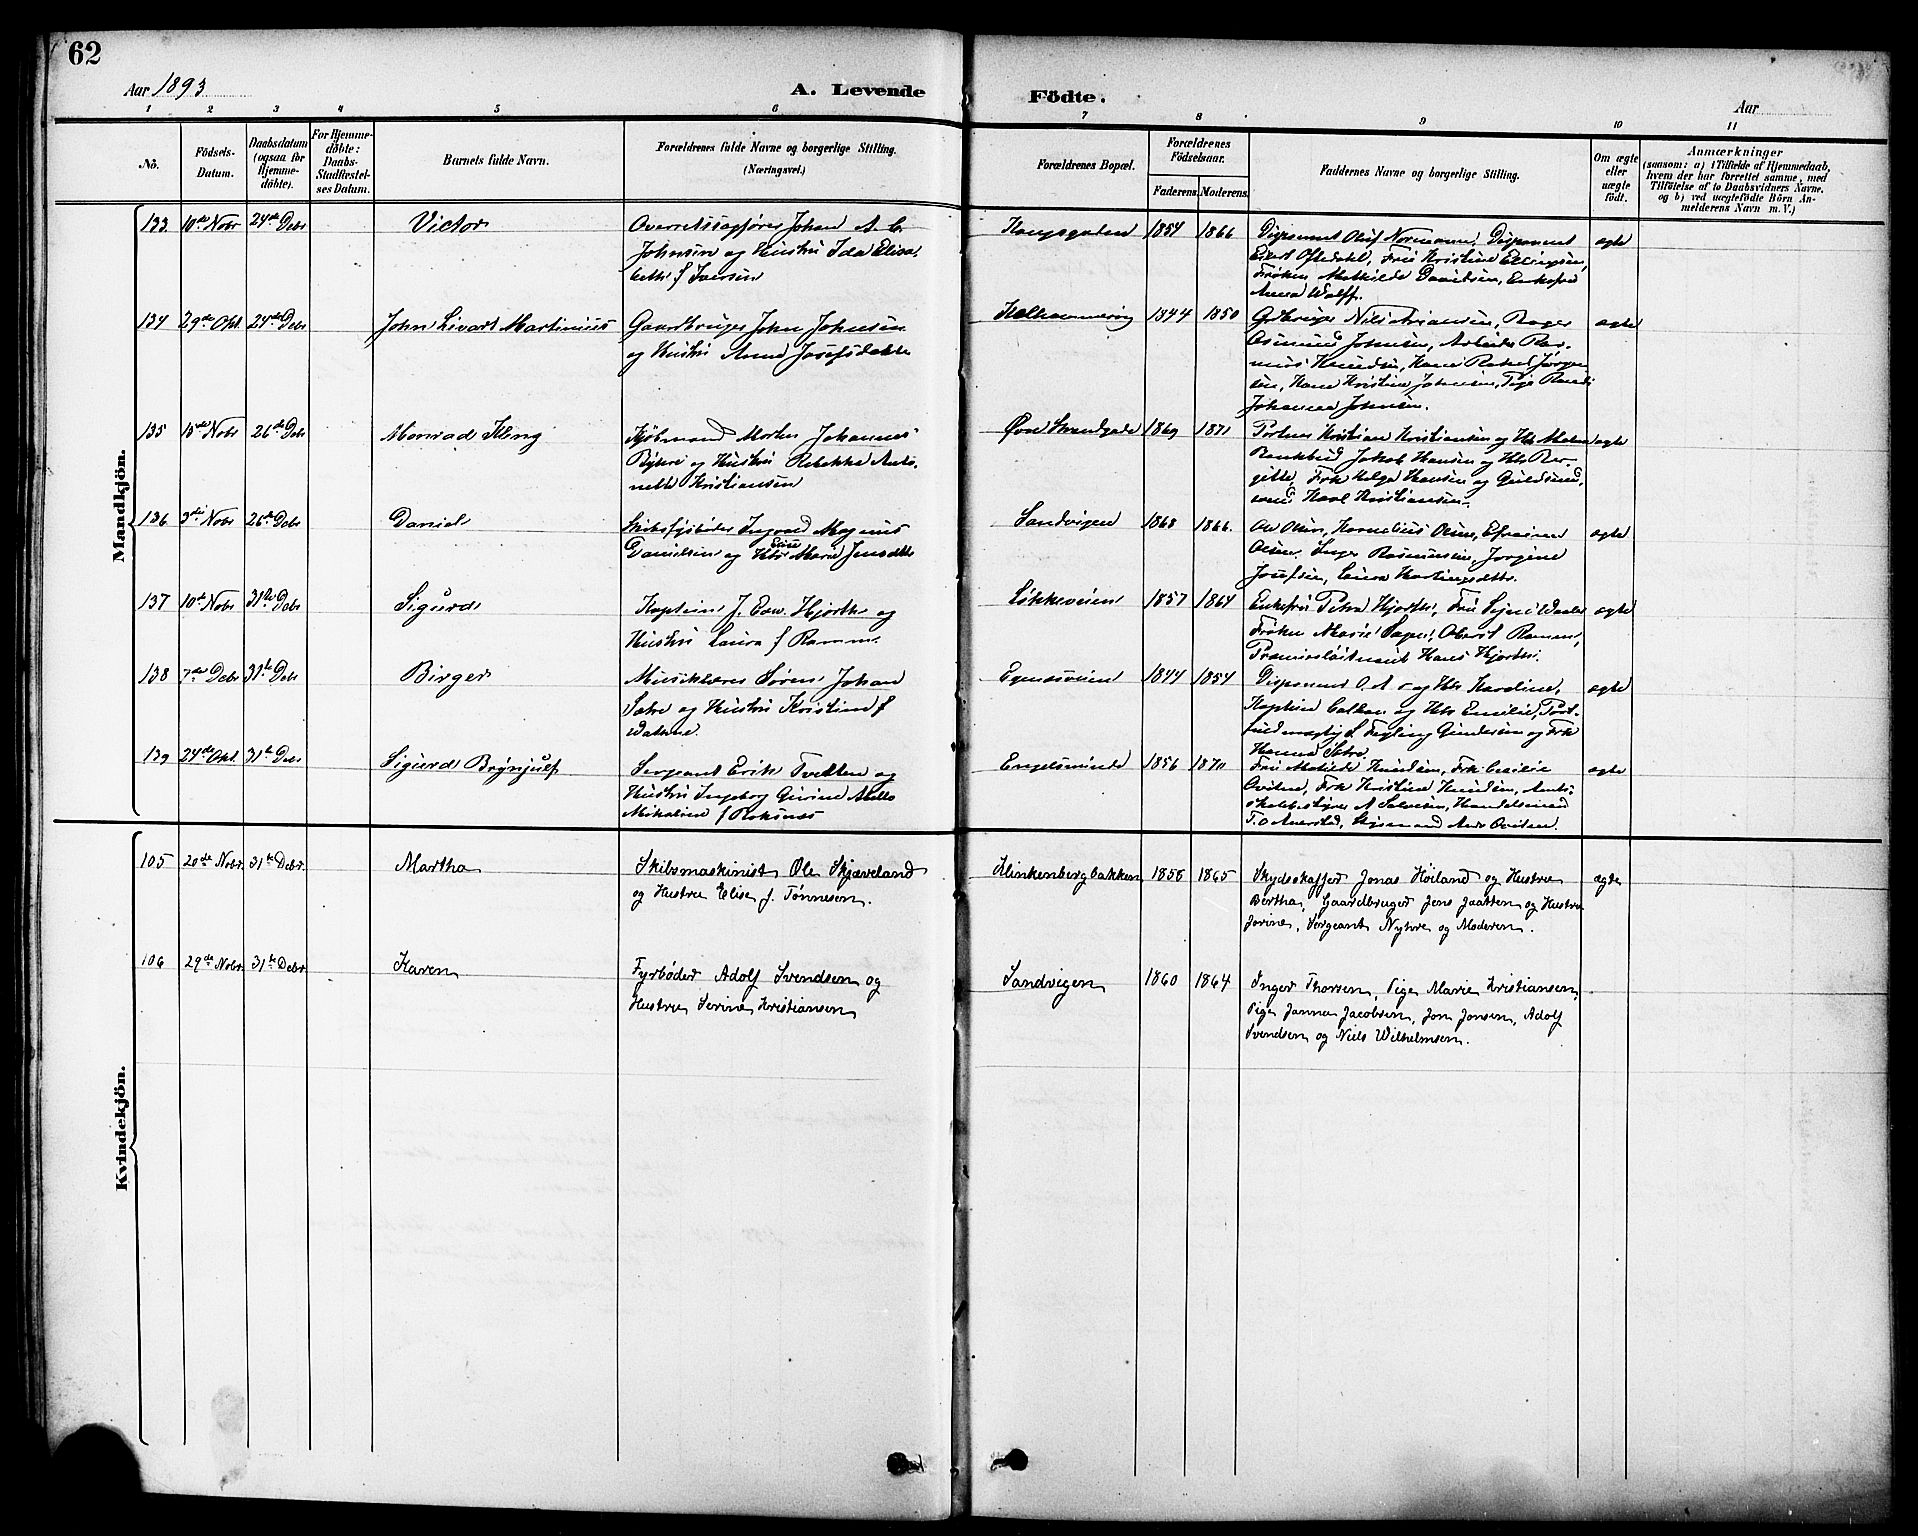 62
Aar 1893
A. Levende
Födte.
Aar
1 2 3 4 5 6 7 8 9 10 11
No.
Födsels-
Datum.
Daabsdatum
(ogsaa for
Hjemme-
döbte).
For Hjemme-
döbte:
Daabs-
Stadfæstel-
ses Datum.
Barnets fulde Navn.
Forældrenes fulde Navne og borgerlige Stilling.
(Næringsvei.)
Forældrenes Bopæl.
Forældrenes
Födselsaar.
Faderens. Moderens.
Faddernes Navne og borgerlige Stilling.
Om ægte
eller
uægte
født.
Anmærkninger
(saasom: a) i Tilfælde af Hjemmedaab,
hvem der har forrettet samme, med
Tilføielse af to Daabsvidners Navne.
og b) ved uægtefødte Børn An-
melderens Navn m. V.)
Mandkjön.
133 10de Nobr 24de Debr Victor
Overretssagfører Johan A. C.
Johnsen og Hustru Ida Elisa-
beth f Iversen
Kongsgaden 1854 1866
Disponent Oluf Normann, Disponent
Eilert Oftedahl, Fru Kristine Ellingsen,
Frøken Mathilde Davidsen, Enkefru
Anna Wolff.
ægte
134 29de Okt. 24de Debr John Sivart Martinius
Gaardbruger John Johnsen
og Hustru Anna Josefsdatter
1844 1850
Gdbruger Nils Arians, Bager
Osmund Johnsen, Arbeider Ras-
mus Knudsen, Kone Rakel Jørgen-
sen, Kone Kristine Johnsen, Pige
Johanna Johnsen.
ægte
135 15de Nobr 26de Debr Monrad Kling
Kjøbmand Morten Johannes
og Hustru Rebekka Anto-
nette Kristiansen
Øvre Strandgade 1869 1871
Kristian Kristiansen og Hts Malene
Bankbud Jakob Hansen og Hts Ber-
gitte, Frk Helga Hansen og Guldsmed-
svend Karl Kristiansen.
ægte
136 3die Nobr 26de Debr Daniel
Skibsfyrbøder Ingvald Magnus
Danielsen og Htr Elise Marie Jensdtr
Sandvigen 1868 1866.
Ole Olsen, Kornelius Olsen, Efraim
Olsen, Inger Rasmussen, Jørgine
Josefsen, Laura
ægte
137 10de Nobr 31te Debr Sigurd
Kaptein J. Edw. Hjorth og
Hustru Laura f Ramm.
Løkkeveien 1857 1864
Enkefru Petra Hjorth, Fru Signe
Frøken Marie Oberst Ramm,
Premierløitnant Hans Hjorth.
ægte
138 7de Debr 31te Debr Birger
Musiklærer Søren Johan
Sætre og Hustru Kristine f
Watne.
Egenæsveien 1844 1854
Disponent O. A. og Hts Karoline,
Kaptein og Hts Emilie,
Gundersen og Frk
Hanna Sætre
ægte
139 24de Okt. 31te Debr Sigurd Brynjulf
Sergeant Erik Tveiten og
Hustru Ingeborg Gurine
Mikaline f Roksnæs
Engelsminde 1856 1870
Fru Matilde Knudsen, Frk Cecilie
Frk Kristine Knudsen, Amts-
skolebestyrer A Salvesen, Handelsmand
ægte
Kvindekjön.
105 20de Nobr. 31te Debr. Martha
Skibsmaskinist Ole Skjæveland
og Hustru Elise f. Tønnesen.
Klinkenbergbakken 1856 1865
Skydsskaffer Jonas Høiland og Hustru
Bertha, Gaardbruger Jens Jaatten og Hustru
Jorine, Sergeant Nytvre og Moderen.
ægte
106 29de Nobr. 31te Debr. Karen
Fyrbøder Adolf Svendsen og
Hustru Serine Kristiansen
Sandvigen 1860 1864
Inger Thorsen, Pige Marie Kristiansen,
Pige Janna Jacobsen, Jon Jonsen, Adolf
Svendsen og Niels Wilhelmsen.